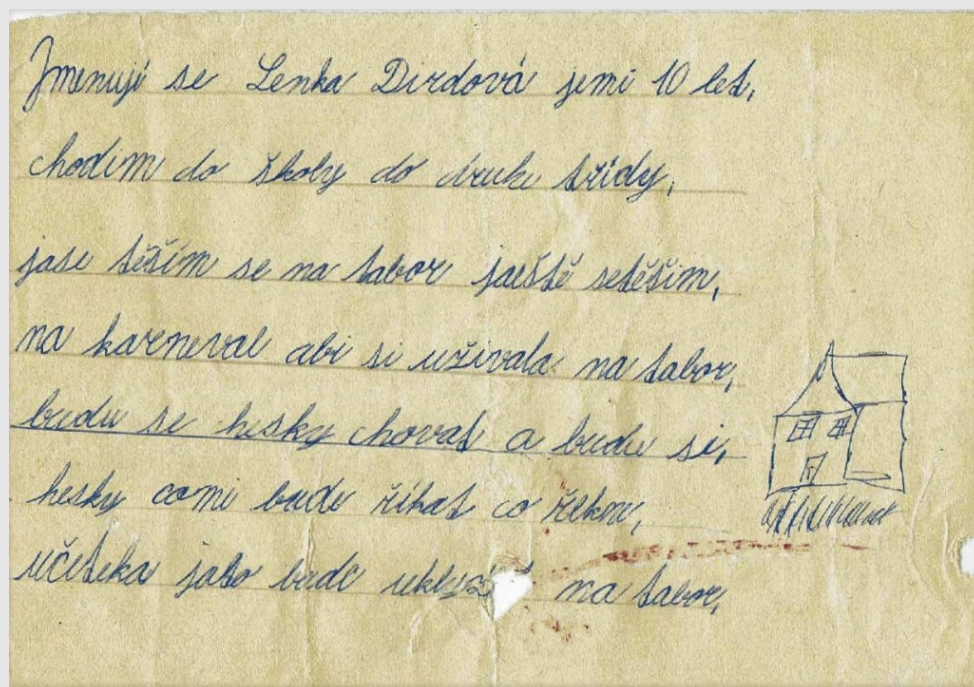 Jmenuji se Lenka Dirdová jemi 10 let,
chodim do školy do druhe třídy,
jase těším se na tabor ještě setěšim,
na karneval abi si uživala na tabor,
budu se hesky chovat a budu si,
hesky comi bude řikat co řekne,
učitelka jabo bude na tabor,